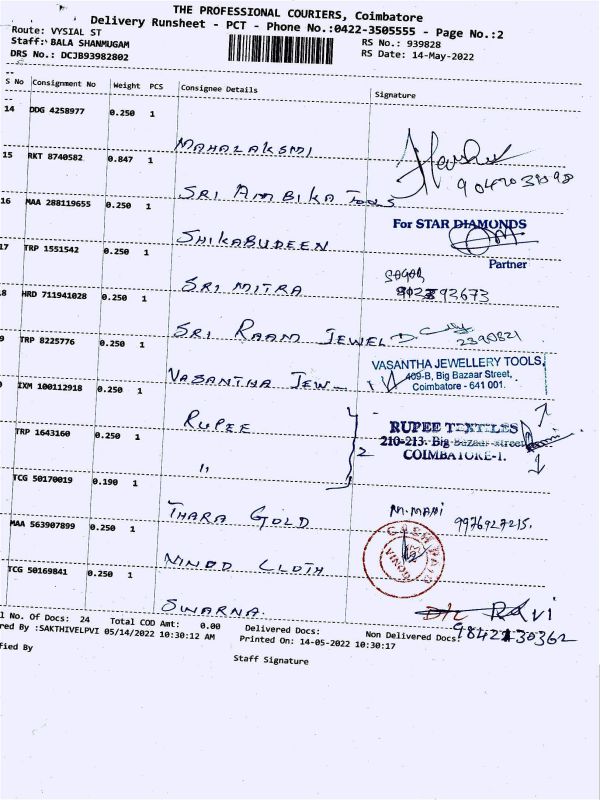 THE PROFESSIONAL COURIERS, Coimbatore
Delivery Runsheet - PCT - Phone No.:0422-3505555 - Page No.:2
Route: VYSIAL ST
Staff: BALA SHANMUGAM
DRS No.: DCJB93982802
RS No.: 939828
RS Date: 14-May-2022
S No Consignment No Weight PCS Consignee Details Signature
14 DDG 4258977 0.250 1
MAHALAKSMI
15 RKT 8740582 0.847 1
SRI AMBIKA TOOLS
16 MAA 288119655 0.250 1
For STAR DIAMONDS
SHIKABUDEEN
Partner
17 TRP 1551542 0.250 1
SRI MITRA
8 HRD 711941028 0.250 1
SRI RAAM JEWEL
2390821
9 TRP 8225776 0.250 1
VASANTHA JEW
VASANTHA JEWELLERY TOOLS,
409-B, Big Bazaar Street,
Coimbatore - 641 001.
IXM 100112918 0.250 1
RUPEE
RUPEE TEXTILES
210-213. Big Bazaar Street
COIMBATORE-1.
TRP 1643160 0.250 1
"
2
TCG 50170019 0.190 1
THARA GOLD
M. MANI
9976927215.
MAA 563907899 0.250 1
NINOD CLOTH
TCG 50169841 0.250 1
SWARNA
RAVI
l No. Of Docs: 24 Total COD Amt: 0.00 Delivered Docs: Non Delivered Docs:
red By :SAKTHIVELPVI 05/14/2022 10:30:12 AM Printed On: 14-05-2022 10:30:17
fied By
Staff Signature